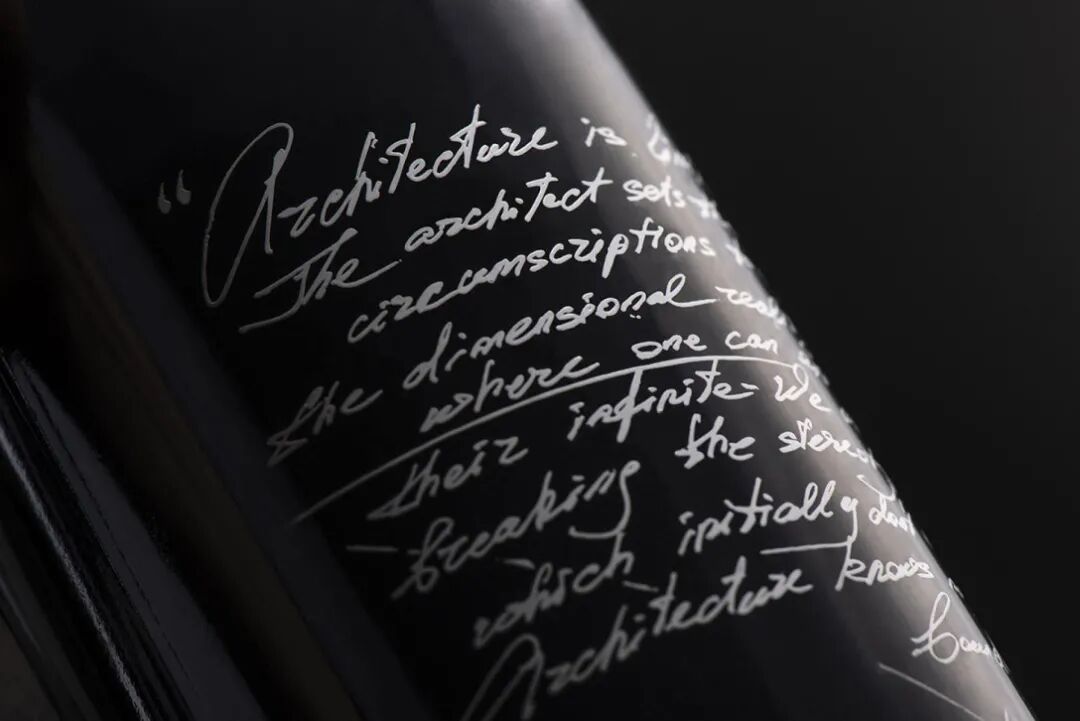 "Architecture is
The architect sets
circumscriptions
the dimensional
where one can
their infinite - We
breaking the
which initially
Architecture knows